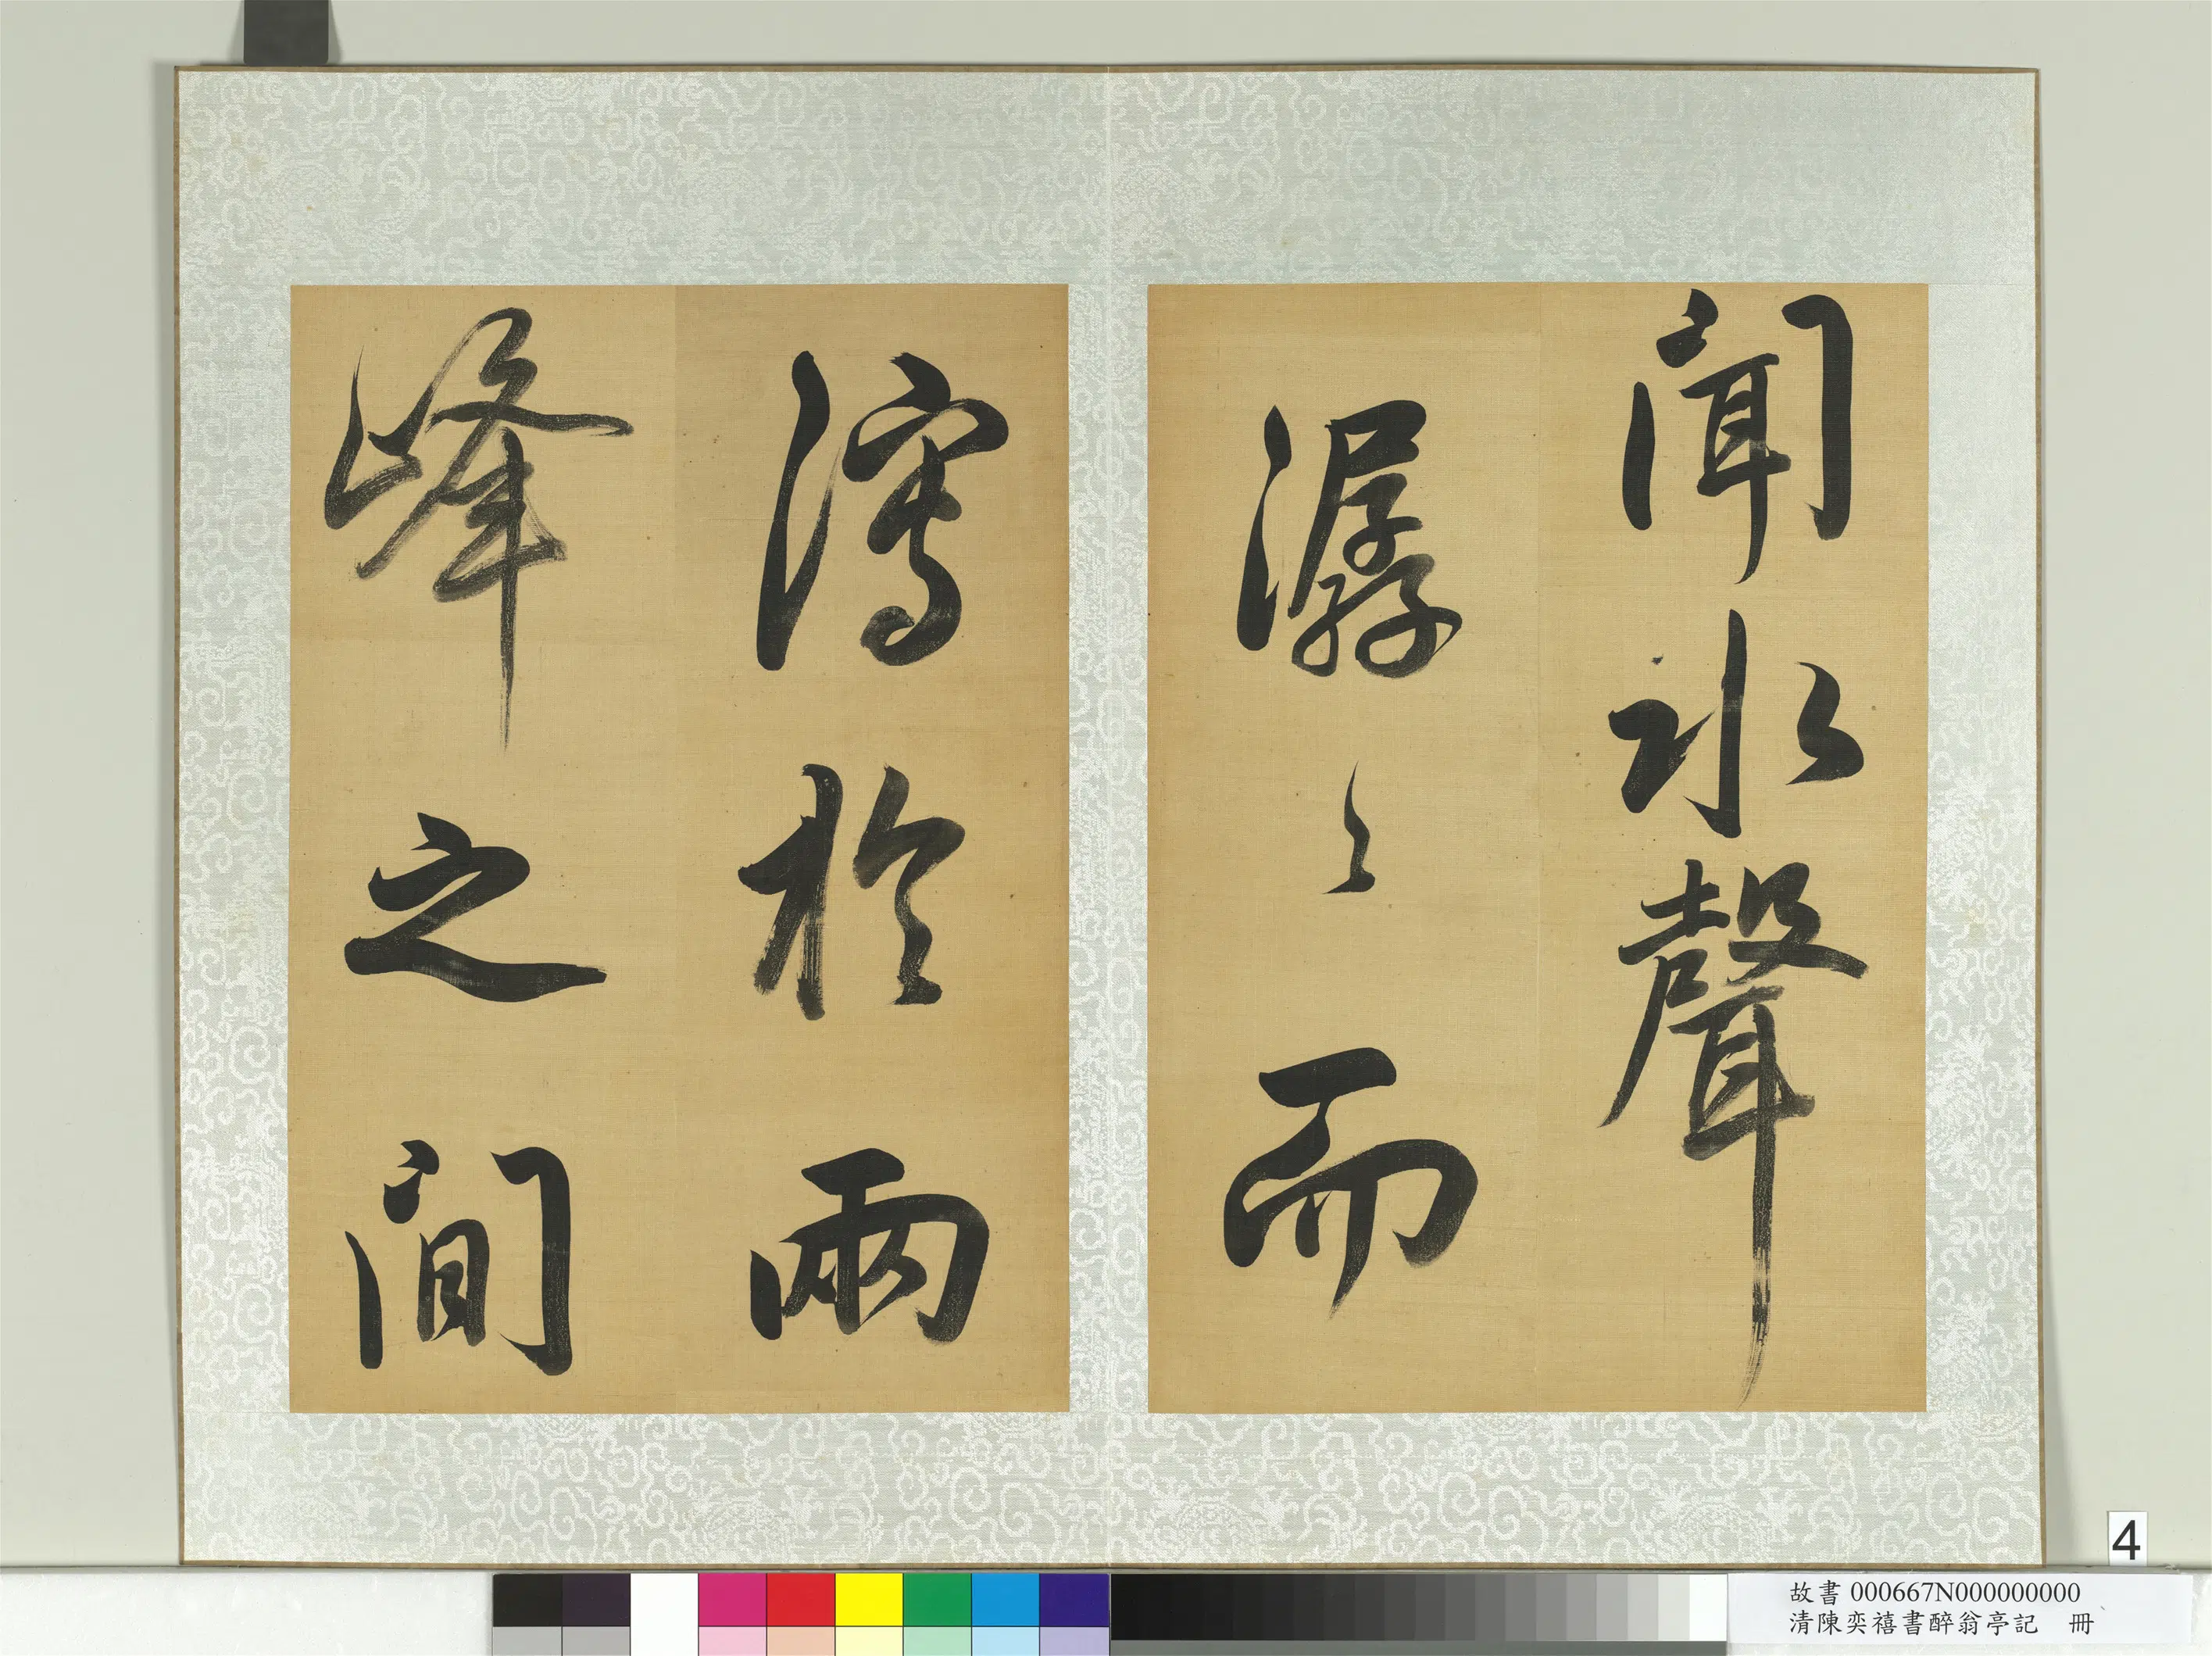 聞水聲
潺〻而
瀉於兩
峰之間
4
故書000667N000000000
清陳奕禧書醉翁亭記 冊